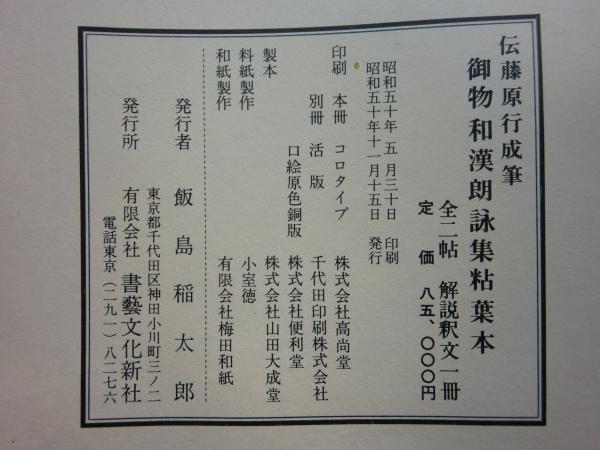 伝藤原行成筆
御物和漢朗詠集粘葉本
全二帖 解説釈文一冊
定価 八五、〇〇〇円
昭和五十年五月三十日 印刷
昭和五十年十一月十五日 発行
印刷 本冊 コロタイプ 株式会社高尚堂
別冊 活版 千代田印刷株式会社
口絵原色銅版 株式会社便利堂
製本 株式会社山田大成堂
料紙製作 小室徳
和紙製作 有限会社梅田和紙
発行者 飯島稲太郎
東京都千代田区神田小川町三ノ二
発行所 有限会社 書藝文化新社
電話東京(二九一)八二七六